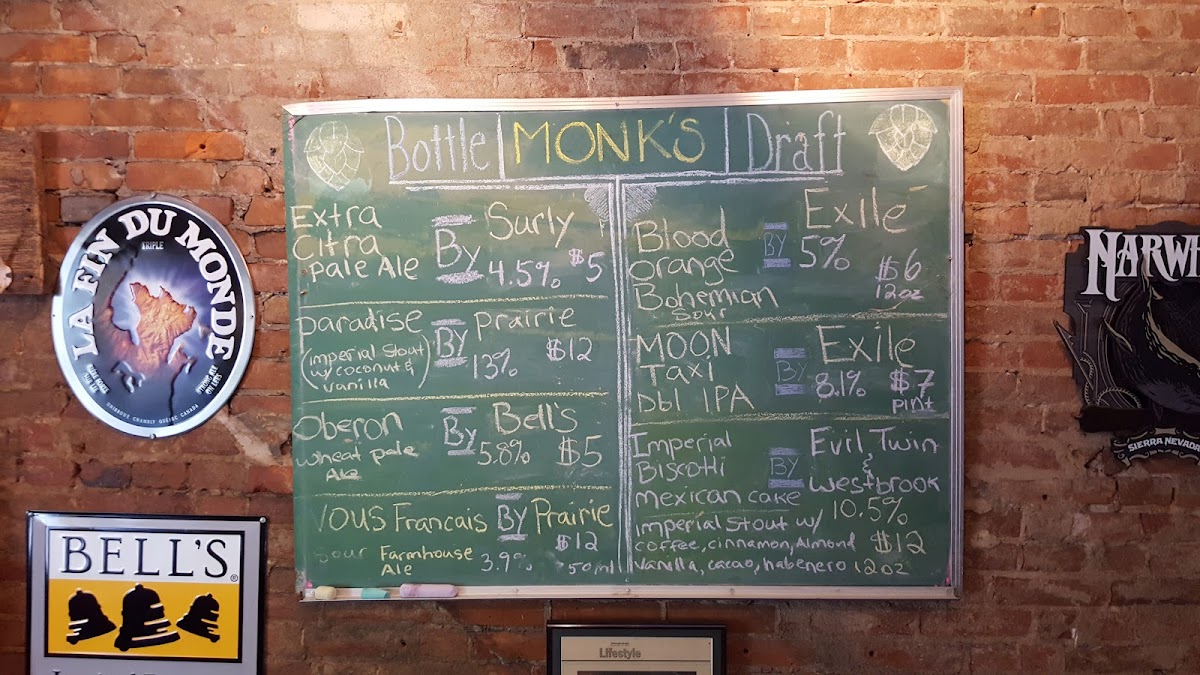 Bottle MONK'S Draft
Extra
Citra
Pale Ale
By
Surly
4.5% $5
paradise
(imperial Stout
w/coconut &
vanilla)
By
Prairie
13% $12
Oberon
wheat pale
Ale
By
Bell's
5.8% $5
VOUS Francais
Sour Farmhouse
Ale
By
Prairie
$12
3.9% 750ml
Blood
orange
Bohemian
Sour
BY
Exile
5% $6
12oz
MOON
Taxi
Dbl IPA
BY
Exile
8.1% $7
pint
Imperial
Biscotti
mexican cake
BY
Evil Twin
&
Westbrook
10.5%
imperial stout w/
coffee, cinnamon, Almond
vanilla, cacao, habenero
$12
12oz
LA FIN DU MONDE
TRIPLE
UNIBROUE CHAMBLY QUÉBEC CANADA
BELL'S
NARW
SIERRA NEVADA
Lifestyle